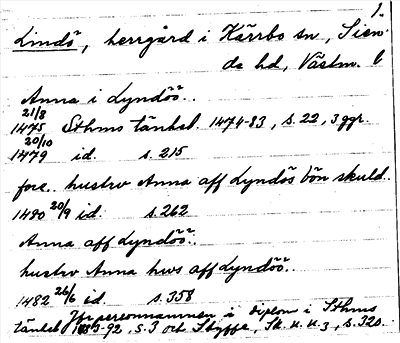 1.
Lindö, herrgård i Kärrbo sn, Sien-
de hd, Västm. l
Anna i Lyndöö..
21/8
1475 Sthms tänkeb. 1474-83, s. 22, 3 ggr.
20/10
1479 id. s. 215
fore.. hustrv Anna aff Lyndös bön skuld..
1480 20/9 id. s. 262
Anna aff Lyndöö..
hustrv Anna hws aff Lyndöö..
1482 26/6 id. s. 358
Jfr personnamnen i diplom i Sthms
tänkeb 1483-92, s. 3 och Styffe, Sk. u. u. 3, s. 320.